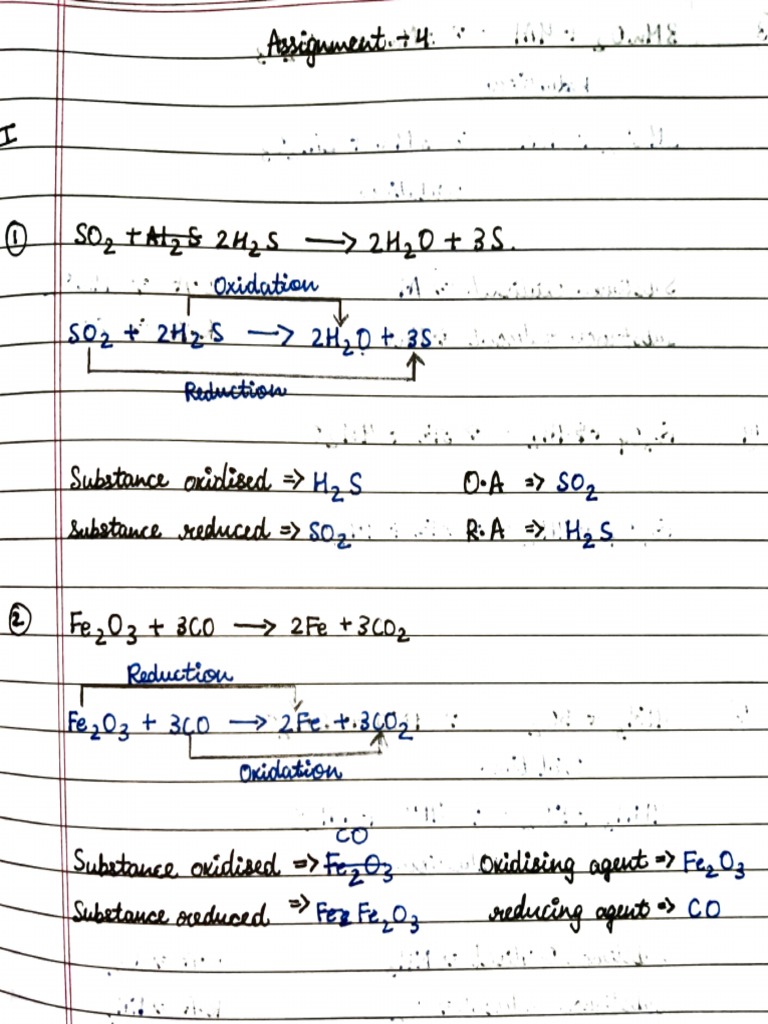 Assignment - 4
I
① SO₂ + Al₂S 2H₂S → 2H₂O + 3S.
Oxidation
SO₂ + 2H₂S → 2H₂O + 3S
Reduction
Substance oxidised ⇒ H₂S O.A ⇒ SO₂
Substance reduced ⇒ SO₂ R.A ⇒ H₂S
② Fe₂O₃ + 3CO → 2Fe + 3CO₂
Reduction
Fe₂O₃ + 3CO → 2Fe + 3CO₂
Oxidation
CO
Substance oxidised ⇒ Fe₂O₃ Oxidising agent ⇒ Fe₂O₃
Substance reduced ⇒ Fe₂ Fe₂O₃ reducing agent ⇒ CO